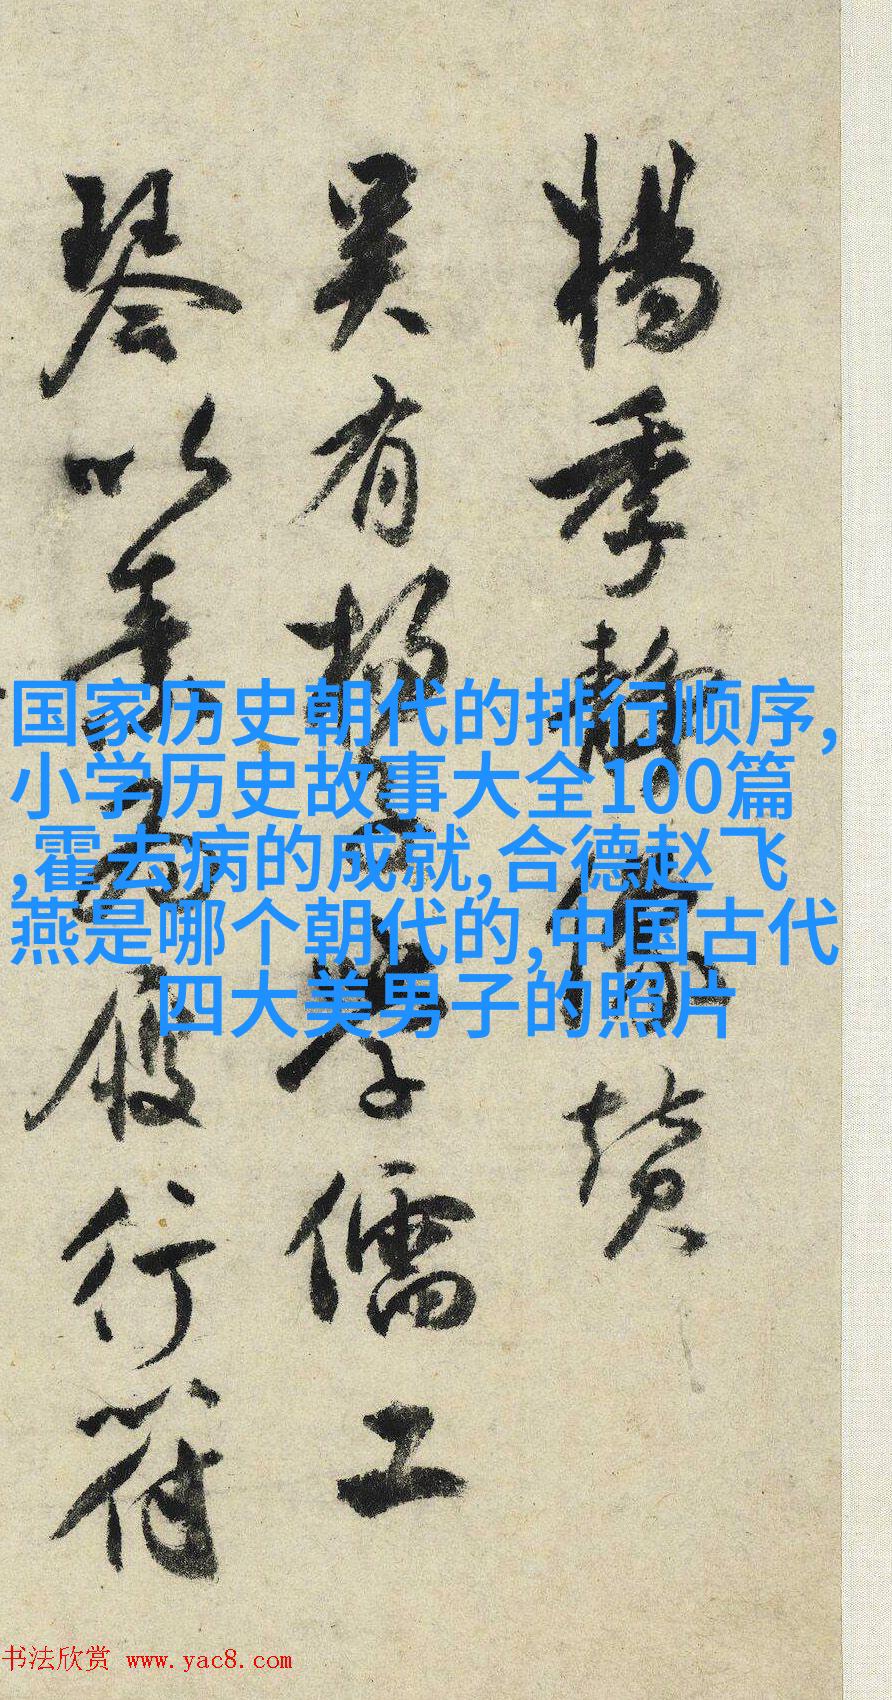 楊季靜像贊
吳有楊子學儒工
琴以為履行符
国家历史朝代的排行顺序,
小学历史故事大全100篇
,霍去病的成就,合德赵飞
燕是哪个朝代的,中国古代
四大美男子的照片
书法欣赏 www.yac8.com